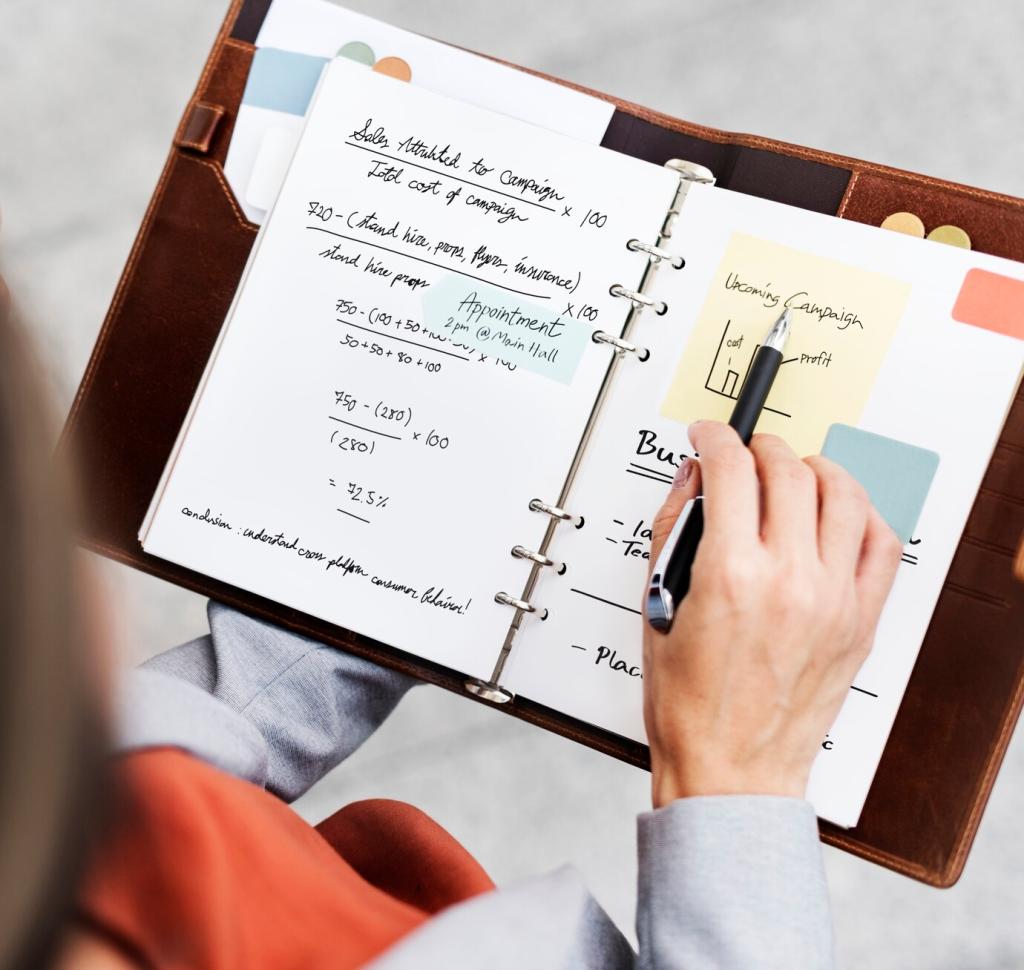 Sales Attributed to Campaign
Total cost of campaign
x 100
720 - (stand hire, props, flyers, insurance)
stand hire props
x 100
Appointment
2pm @ Main Hall
750 - (100 + 50 +
x 100
50 + 50 + 80 + 100
750 - (280)
(280)
x 100
= 72.5%
conclusion : understand cross platform consumer behavior!
Upcoming Campaign
cost
profit